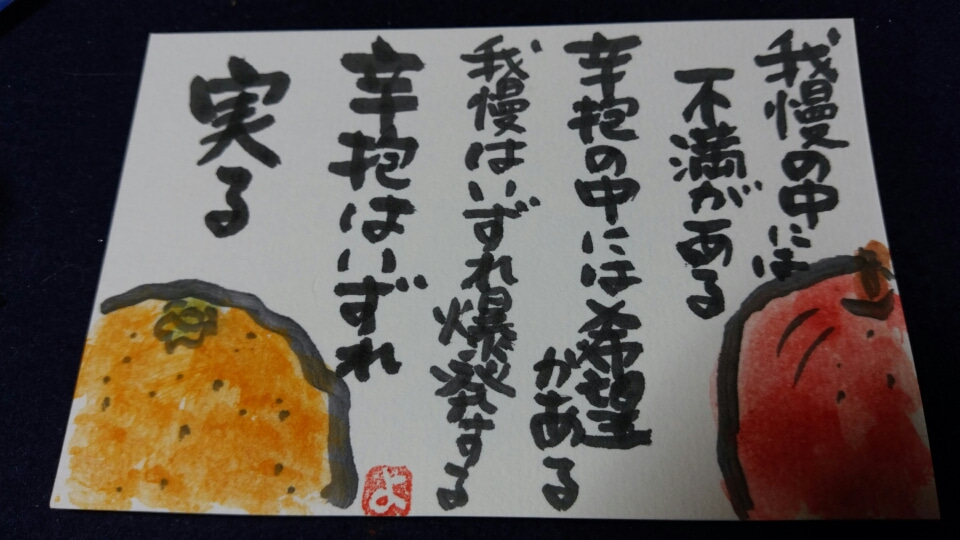 我慢の中には
不満がある
辛抱の中には希望
がある
我慢はいずれ爆発する
辛抱はいずれ
実る
よ